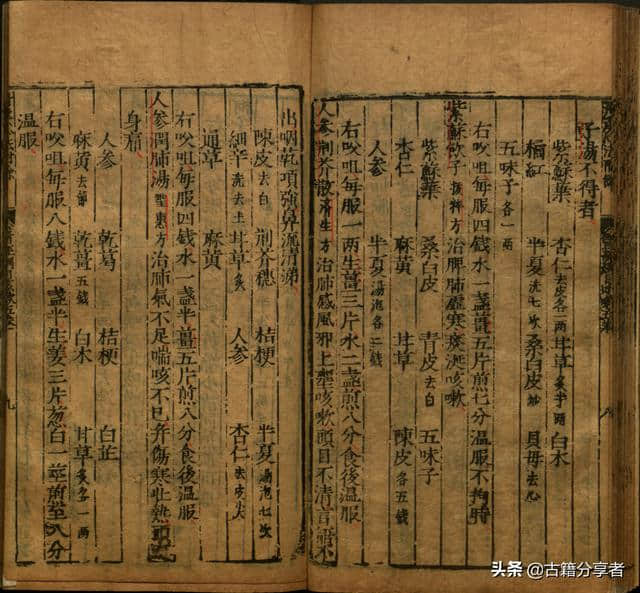 子湯不得者
紫蘇葉 杏仁去皮各一兩 甘草炙半兩 白木
橘紅 半夏洗七次 桑白皮炒 貝母去心
五味子各一兩
右㕮咀每服四錢水一盞薑五片煎七分温服不拘時
紫蘇飲子 方治脾肺虛寒痰涎咳嗽
紫蘇葉 桑白皮 青皮去白 五味子
杏仁 麻黄 甘草 陳皮各五錢
人參 半夏湯泡各二錢
右㕮咀每服一兩生薑三片水二盞煎八分食後温服
人參荆芥散濟生方治肺感風邪上壅咳嗽頭目不清言語不
出咽乾項強鼻流清涕
陳皮去白 荆芥穗 桔梗 半夏湯泡七次
細辛洗去土 甘草炙 人參 杏仁去皮尖
通草 麻黄
右㕮咀每服四錢水一盞半薑五片煎八分食後温服
人參潤肺湯聖惠方治肺氣不足喘咳不已并傷寒壯熱頭
身痛
人參 乾葛 桔梗 白芷
麻黄去節 乾薑五錢 白木 甘草炙各一兩
右㕮咀每服八錢水一盞半生姜三片葱白一莖煎至八分
温服
九
八
头条 @古籍分享者